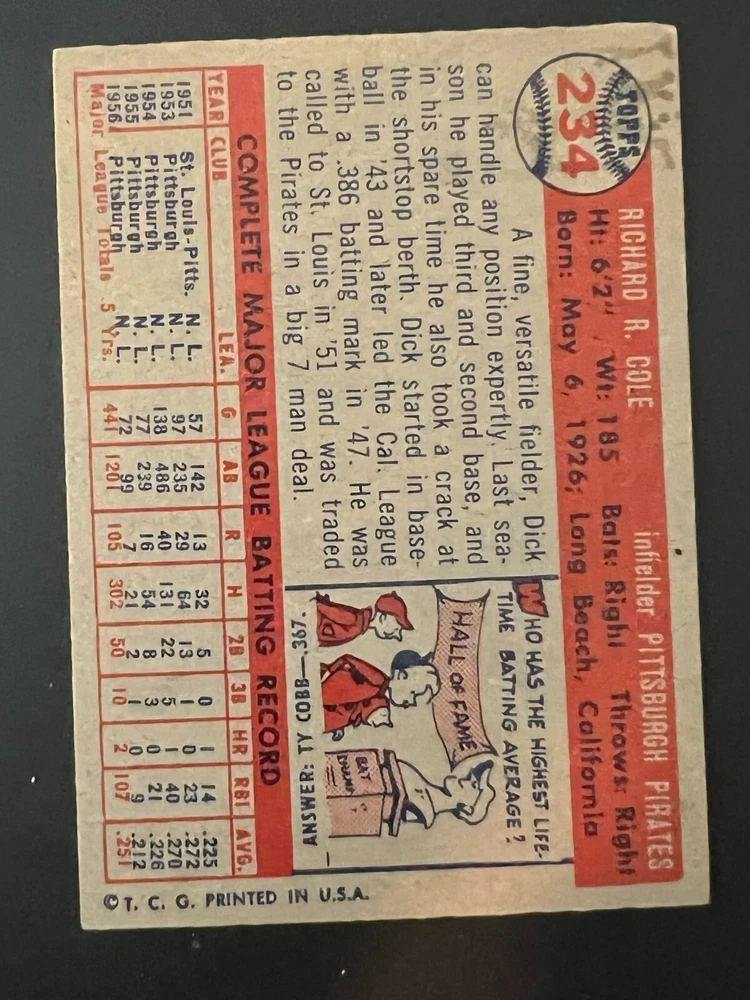 TOPPS
234
RICHARD R. COLE infielder PITTSBURGH PIRATES
Ht: 6'2", Wt: 185 Bats: Right Throws: Right
Born: May 6, 1926; Long Beach, California
A fine, versatile fielder, Dick
can handle any position expertly. Last sea-
son he played third and second base, and
in his spare time he also took a crack at
the shortstop berth. Dick started in base-
ball in '43 and later led the Cal. League
with a .386 batting mark in '47. He was
called to St. Louis in '51 and was traded
to the Pirates in a big 7 man deal.
WHO HAS THE HIGHEST LIFE-
TIME BATTING AVERAGE?
HALL OF FAME
BAT
CHAMP
ANSWER: TY COBB—.367.
COMPLETE MAJOR LEAGUE BATTING RECORD
YEAR CLUB LEA. G AB R H 2B 3B HR RBI AVG.
1951 St. Louis-Pitts. N. L. 57 142 13 32 5 0 1 14 .225
1953 Pittsburgh N. L. 97 235 29 64 13 1 0 23 .272
1954 Pittsburgh N. L. 138 486 40 131 22 5 1 40 .270
1955 Pittsburgh N. L. 77 239 16 54 8 3 0 21 .226
1956 Pittsburgh N. L. 72 99 7 21 2 1 0 9 .212
Major League Totals 5 Yrs. 441 1201 105 302 50 10 2 107 .251
© T. C. G. PRINTED IN U.S.A.